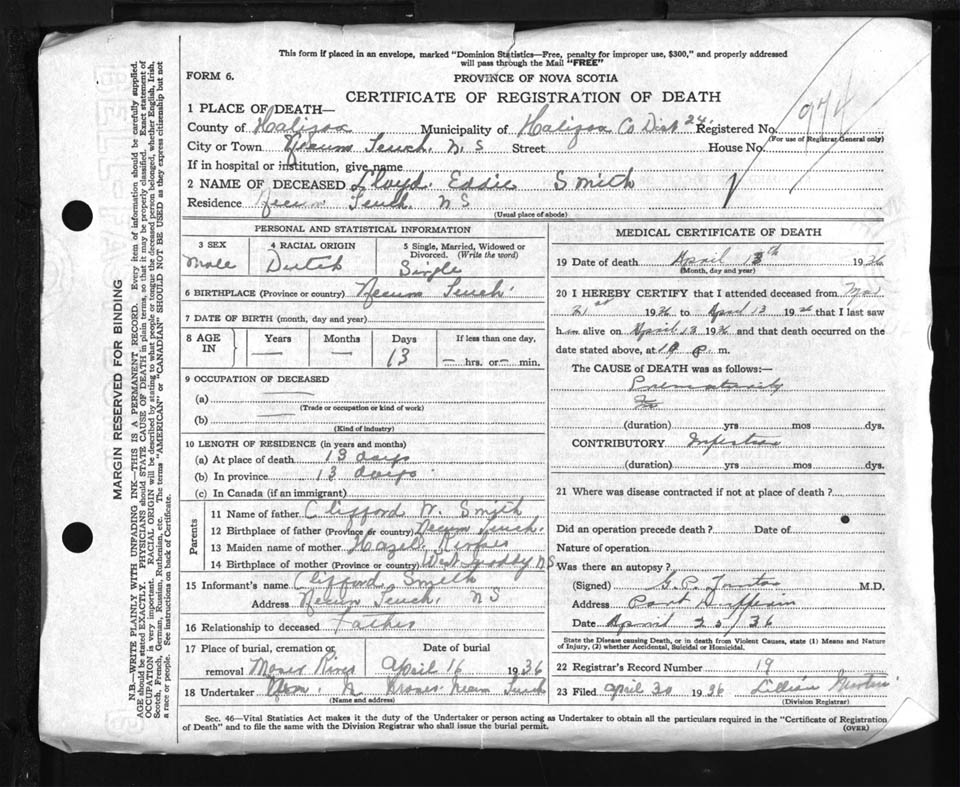 This form if placed in an envelope, marked "Dominion Statistics—Free, penalty for improper use, $300," and properly addressed
will pass through the Mail "FREE"
FORM 6.
PROVINCE OF NOVA SCOTIA
CERTIFICATE OF REGISTRATION OF DEATH
974
1 PLACE OF DEATH—
County of Halifax Municipality of Halifax Co Dist 24 Registered No.
(For use of Registrar General only)
City or Town Necum Teuch. N. S Street House No.
If in hospital or institution, give name
2 NAME OF DECEASED Lloyd. Eddie Smith
Residence Necum Teuch. N S
(Usual place of abode)
PERSONAL AND STATISTICAL INFORMATION
3 SEX Male
4 RACIAL ORIGIN Dutch
5 Single, Married, Widowed or Divorced. (Write the word) Single
6 BIRTHPLACE (Province or country) Necum Teuch
7 DATE OF BIRTH (month, day and year)
8 AGE IN
Years —
Months —
Days 13
If less than one day,
— hrs. or — min.
9 OCCUPATION OF DECEASED
(a)
(Trade or occupation or kind of work)
(b)
(Kind of industry)
10 LENGTH OF RESIDENCE (in years and months)
(a) At place of death 13 days
(b) In province 13 days
(c) In Canada (if an immigrant)
Parents
11 Name of father Clifford W. Smith
12 Birthplace of father (Province or country) Necum Teuch.
13 Maiden name of mother Hazel
14 Birthplace of mother (Province or country) West N S
15 Informant's name Clifford Smith
Address Necum Teuch. N S
16 Relationship to deceased Father
17 Place of burial, cremation or removal Moser River
Date of burial April 16 1936
18 Undertaker Necum Teuch
(Name and address)
MEDICAL CERTIFICATE OF DEATH
19 Date of death April 13th 1936
(Month, day and year)
20 I HEREBY CERTIFY that I attended deceased from Mar
31st 1936 to April 13 1936 that I last saw
him alive on April 13 1936 and that death occurred on
date stated above, at P. m.
The CAUSE of DEATH was as follows:—
Prematurity
(duration) yrs mos dys.
CONTRIBUTORY
(duration) yrs mos dys.
21 Where was disease contracted if not at place of death?
Did an operation precede death? Date of
Nature of operation
Was there an autopsy?
(Signed) G. P. M.D.
Address Port Dufferin
Date April 25/36
State the Disease causing Death, or in death from Violent Causes, state (1) Means and Nature
of Injury, (2) whether Accidental, Suicidal or Homicidal.
22 Registrar's Record Number 19
23 Filed April 30 1936 Lillian
(Division Registrar)
Sec. 46—Vital Statistics Act makes it the duty of the Undertaker or person acting as Undertaker to obtain all the particulars required in the "Certificate of Registration
of Death" and to file the same with the Division Registrar who shall issue the burial permit.
(OVER)
MARGIN RESERVED FOR BINDING
N.B.—WRITE PLAINLY WITH UNFADING INK—THIS IS A PERMANENT RECORD. Every item of information should be carefully supplied.
AGE should be stated EXACTLY. PHYSICIANS should STATE CAUSE OF DEATH in plain terms, so that it may be properly classified. Exact statement of
OCCUPATION is very important. RACIAL ORIGIN will be described by stating to what people or tongue the deceased person belonged, whether English, Irish,
Scotch, French, German, Russian, Ruthenian, etc. The terms "AMERICAN" or "CANADIAN" SHOULD NOT BE USED as they express citizenship but not
a race or people. See instructions on back of Certificate.